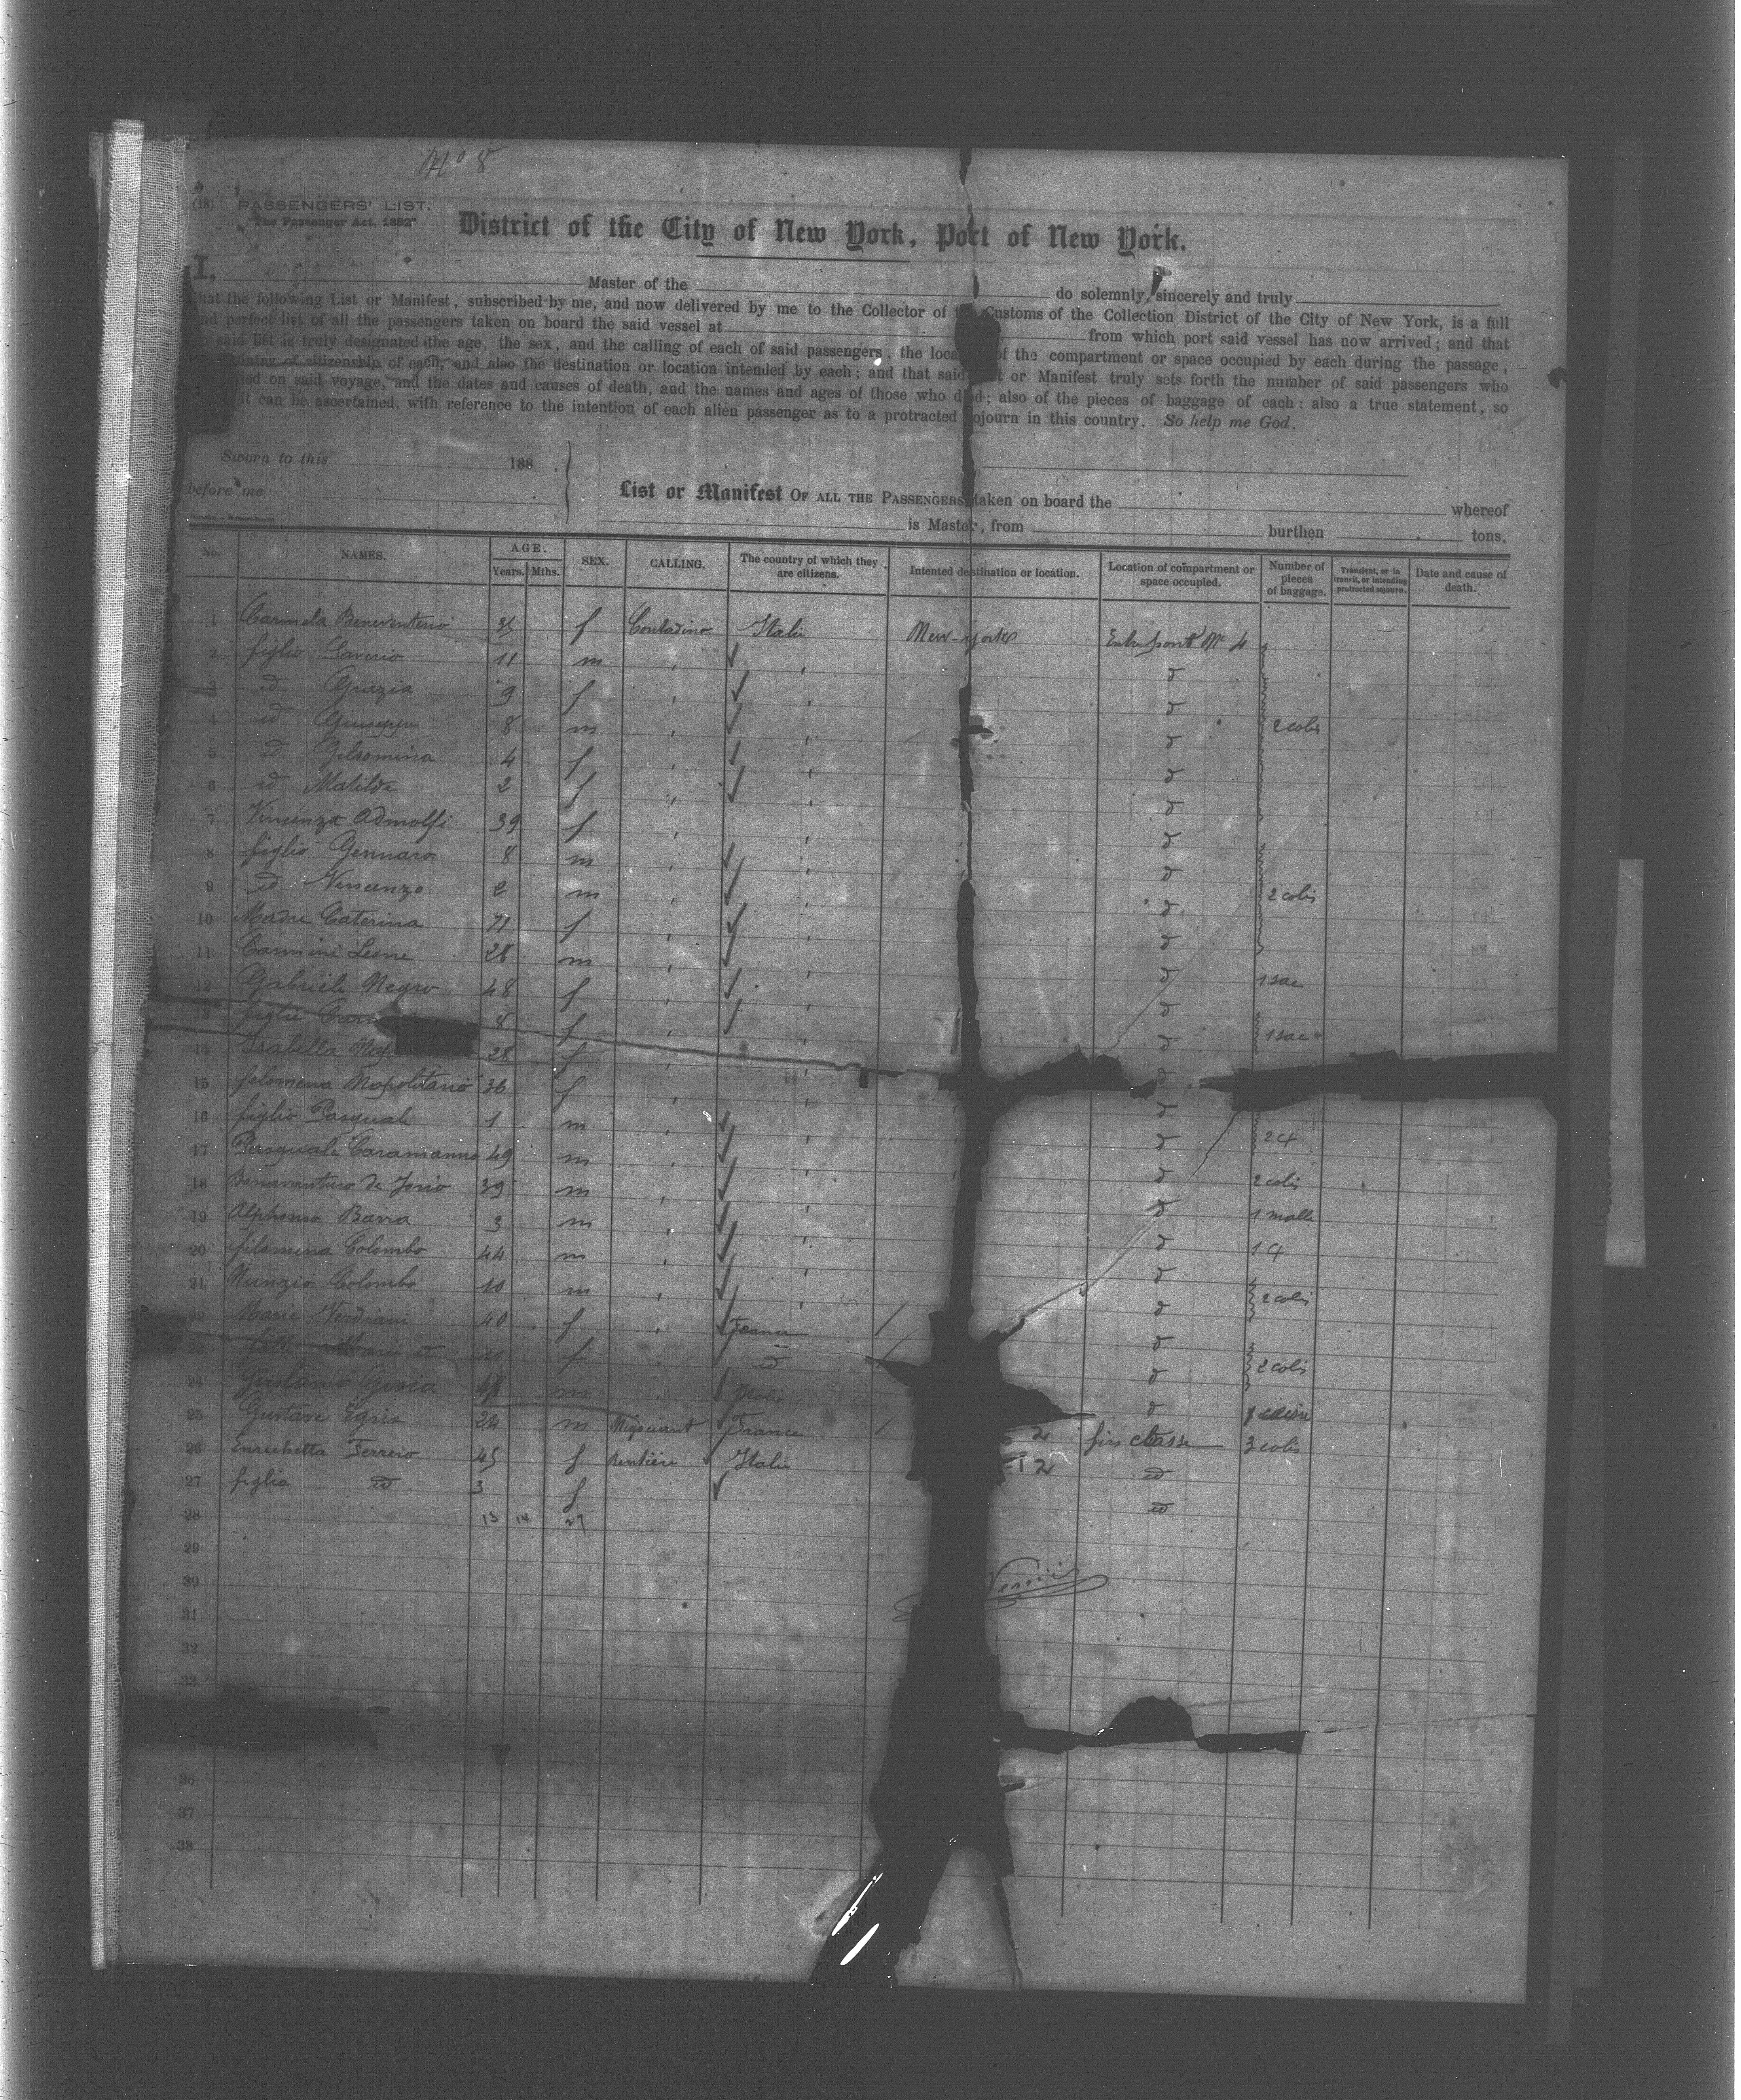 No 8
(18) PASSENGERS' LIST.
"The Passenger Act, 1882"
District of the City of New York, Port of New York.
I, Master of the do solemnly, sincerely and truly
that the following List or Manifest, subscribed by me, and now delivered by me to the Collector of the Customs of the Collection District of the City of New York, is a full
and perfect list of all the passengers taken on board the said vessel at from which port said vessel has now arrived; and that
said list is truly designated the age, the sex, and the calling of each of said passengers, the loca of the compartment or space occupied by each during the passage,
country of citizenship of each, and also the destination or location intended by each; and that said or Manifest truly sets forth the number of said passengers who
died on said voyage, and the dates and causes of death, and the names and ages of those who died; also of the pieces of baggage of each: also a true statement, so
it can be ascertained, with reference to the intention of each alien passenger as to a protracted sojourn in this country. So help me God.
Sworn to this 188
before me
List or Manifest OF ALL THE PASSENGERS taken on board the whereof
is Master, from burthen tons.
No. NAMES. AGE. Years. Mths. SEX. CALLING. The country of which they are citizens. Intented destination or location. Location of compartment or space occupied. Number of pieces of baggage. Transient, or in transit, or intending protracted sojourn. Date and cause of death.
1 Carmela Beneventeno 35 f Contadino Italie New-york Entrepont No 4
2 figlio Saverio 11 m
3 id Grazia 9 f
4 id Giuseppe 8 m 2 colis
5 id Gelsomina 4 f
6 id Matilde 2 f
7 Vincenza Admolfi 39 f
8 figlio Gennaro 8 m
9 id Vincenzo 2 m 2 colis
10 Madre Caterina 71 f
11 Carmine Leone 28 m
12 Gabriele Negro 48 f 1 sac
13 figlie 8 f 1 sac
14 Isabella 28 f
15 filomena Napolitano 36 f
16 figlio Pasquale 1 m
17 Pasquale Caramanno 49 m
18 Benaventuro de Jorio 39 m 2 colis
19 Alphonso Barra 3 m 1 malle
20 filomena Colombo 44 m
21 Nunzio Colombo 10 m 2 colis
22 Marie Verdiani 40 f France
23 11 f id 2 colis
24 Girolamo Gioia m Italie
25 Gustave Egrix 24 m Négociant France 2 firs classe 3 colis
26 Enrichetta Ferrero 45 f Rentière Italie 2 id
27 figlia id 3 f id
28 13 14 27
29
30
31
32
33
36
37
38